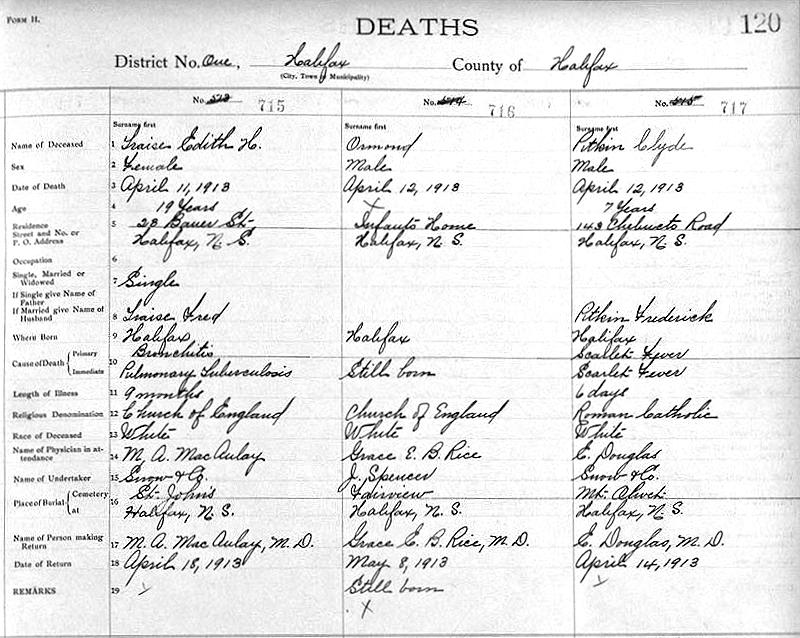 FORM H.
DEATHS
120
District No. One, Halifax County of Halifax
(City, Town or Municipality)
No. 513 715 No. 514 716 No. 515 717
Surname first Surname first Surname first
Name of Deceased 1 Traise Edith H. Ormond Pitkin Clyde
Sex 2 Female Male Male
Date of Death 3 April 11, 1913 April 12, 1913 April 12, 1913
Age 4 19 Years X 7 Years
Residence Street and No. or P. O. Address 5 28 Bauer St. Infants Home 143 Chebucto Road
Halifax, N. S. Halifax, N. S. Halifax, N. S.
Occupation 6
Single, Married or Widowed 7 Single
If Single give Name of Father
If Married give Name of Husband 8 Traise Fred Pitkin Frederick
Where Born 9 Halifax Halifax Halifax
Cause of Death Primary 10 Bronchitis Scarlet Fever
Immediate Pulmonary Tuberculosis Still born Scarlet Fever
Length of Illness 11 9 months 6 days
Religious Denomination 12 Church of England Church of England Roman Catholic
Race of Deceased 13 White White White
Name of Physician in attendance 14 M. A. MacAulay Grace E. B. Rice E. Douglas
Name of Undertaker 15 Snow & Co. J. Spencer Snow & Co.
Place of Burial Cemetery 16 St. John's Fairview Mt. Olivet
at Halifax, N. S. Halifax, N. S. Halifax, N. S.
Name of Person making Return 17 M. A. MacAulay, M. D. Grace E. B. Rice, M. D. E. Douglas, M. D.
Date of Return 18 April 18, 1913 May 8, 1913 April 14, 1913
REMARKS 19 Still born
X